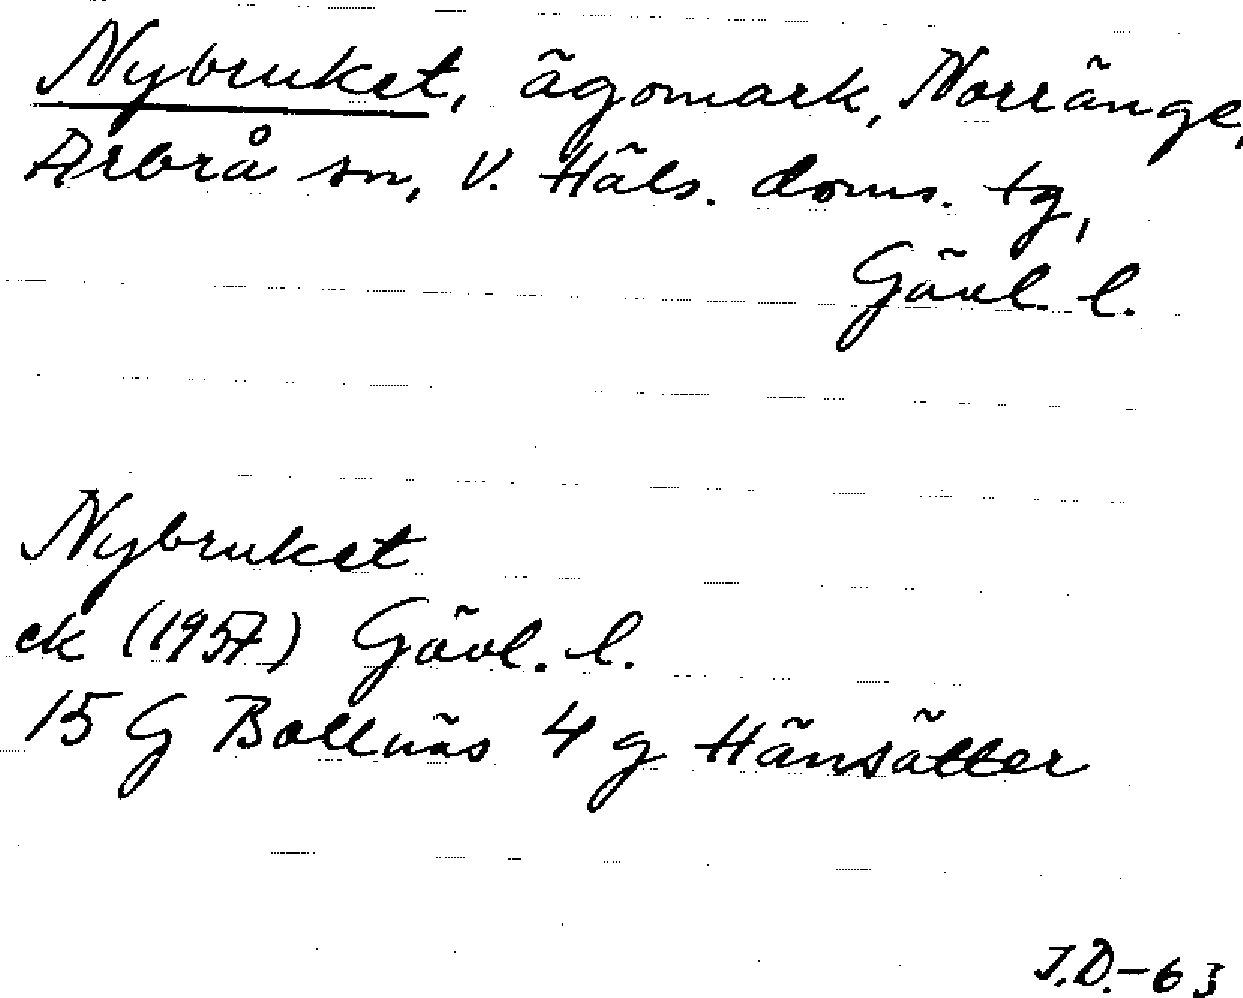 Nybruket, ägomark, Norränge,
Arbrå sn, V. Häls. doms. tg,
Gävl. l.
Nybruket
ek (1957) Gävl. l.
15 G Bollnäs 4 g Hänsätter
I.D.-63